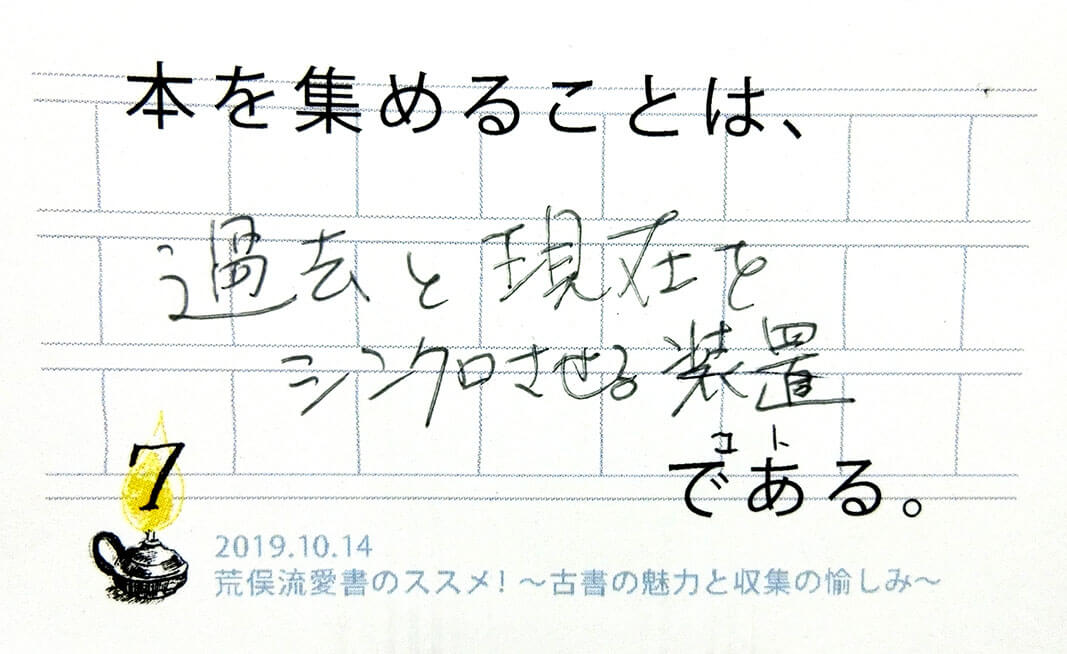 本を集めることは、
過去と現在を
シンクロさせる装置
コト
である。
7
2019.10.14
荒俣流愛書のススメ!～古書の魅力と収集の愉しみ～